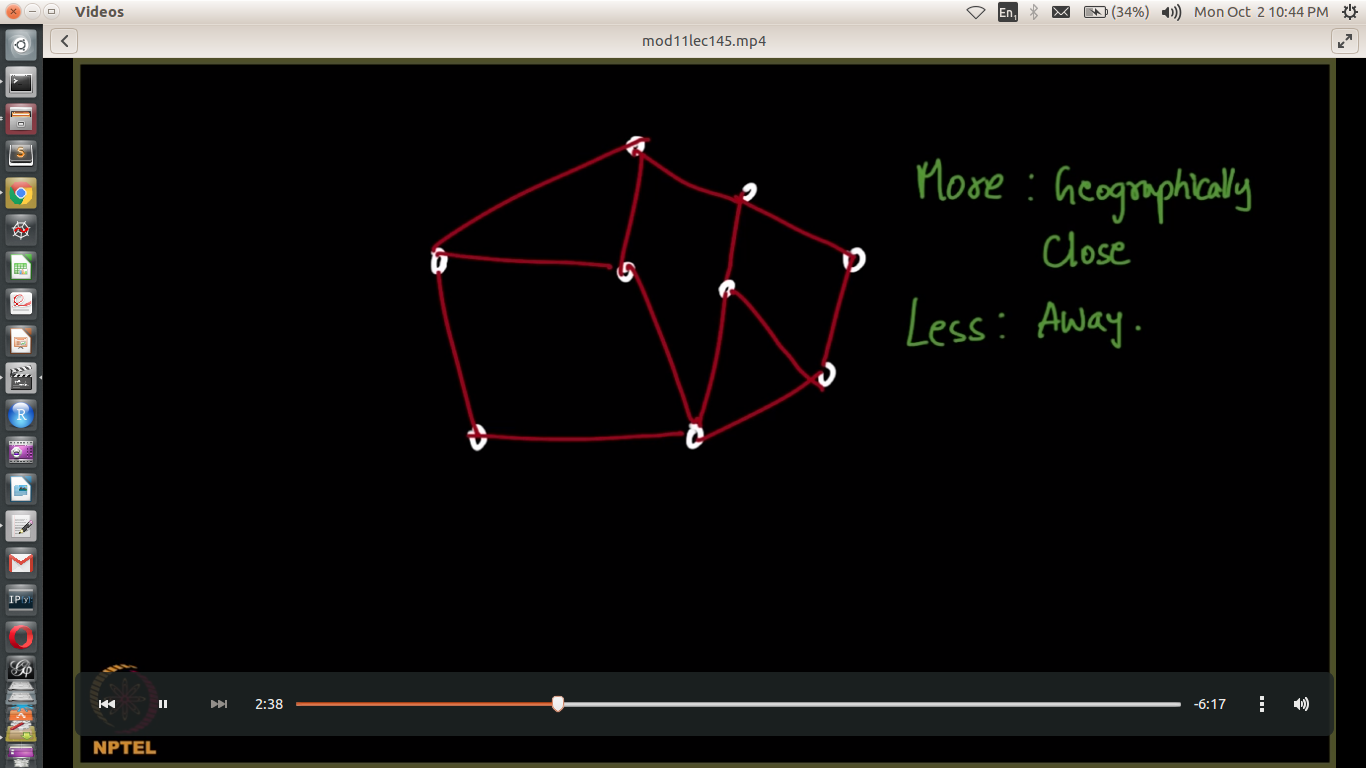 Videos
En1
(34%)
Mon Oct 2 10:44 PM
mod11lec145.mp4
More : Geographically
Close
Less : Away.
2:38
-6:17
NPTEL